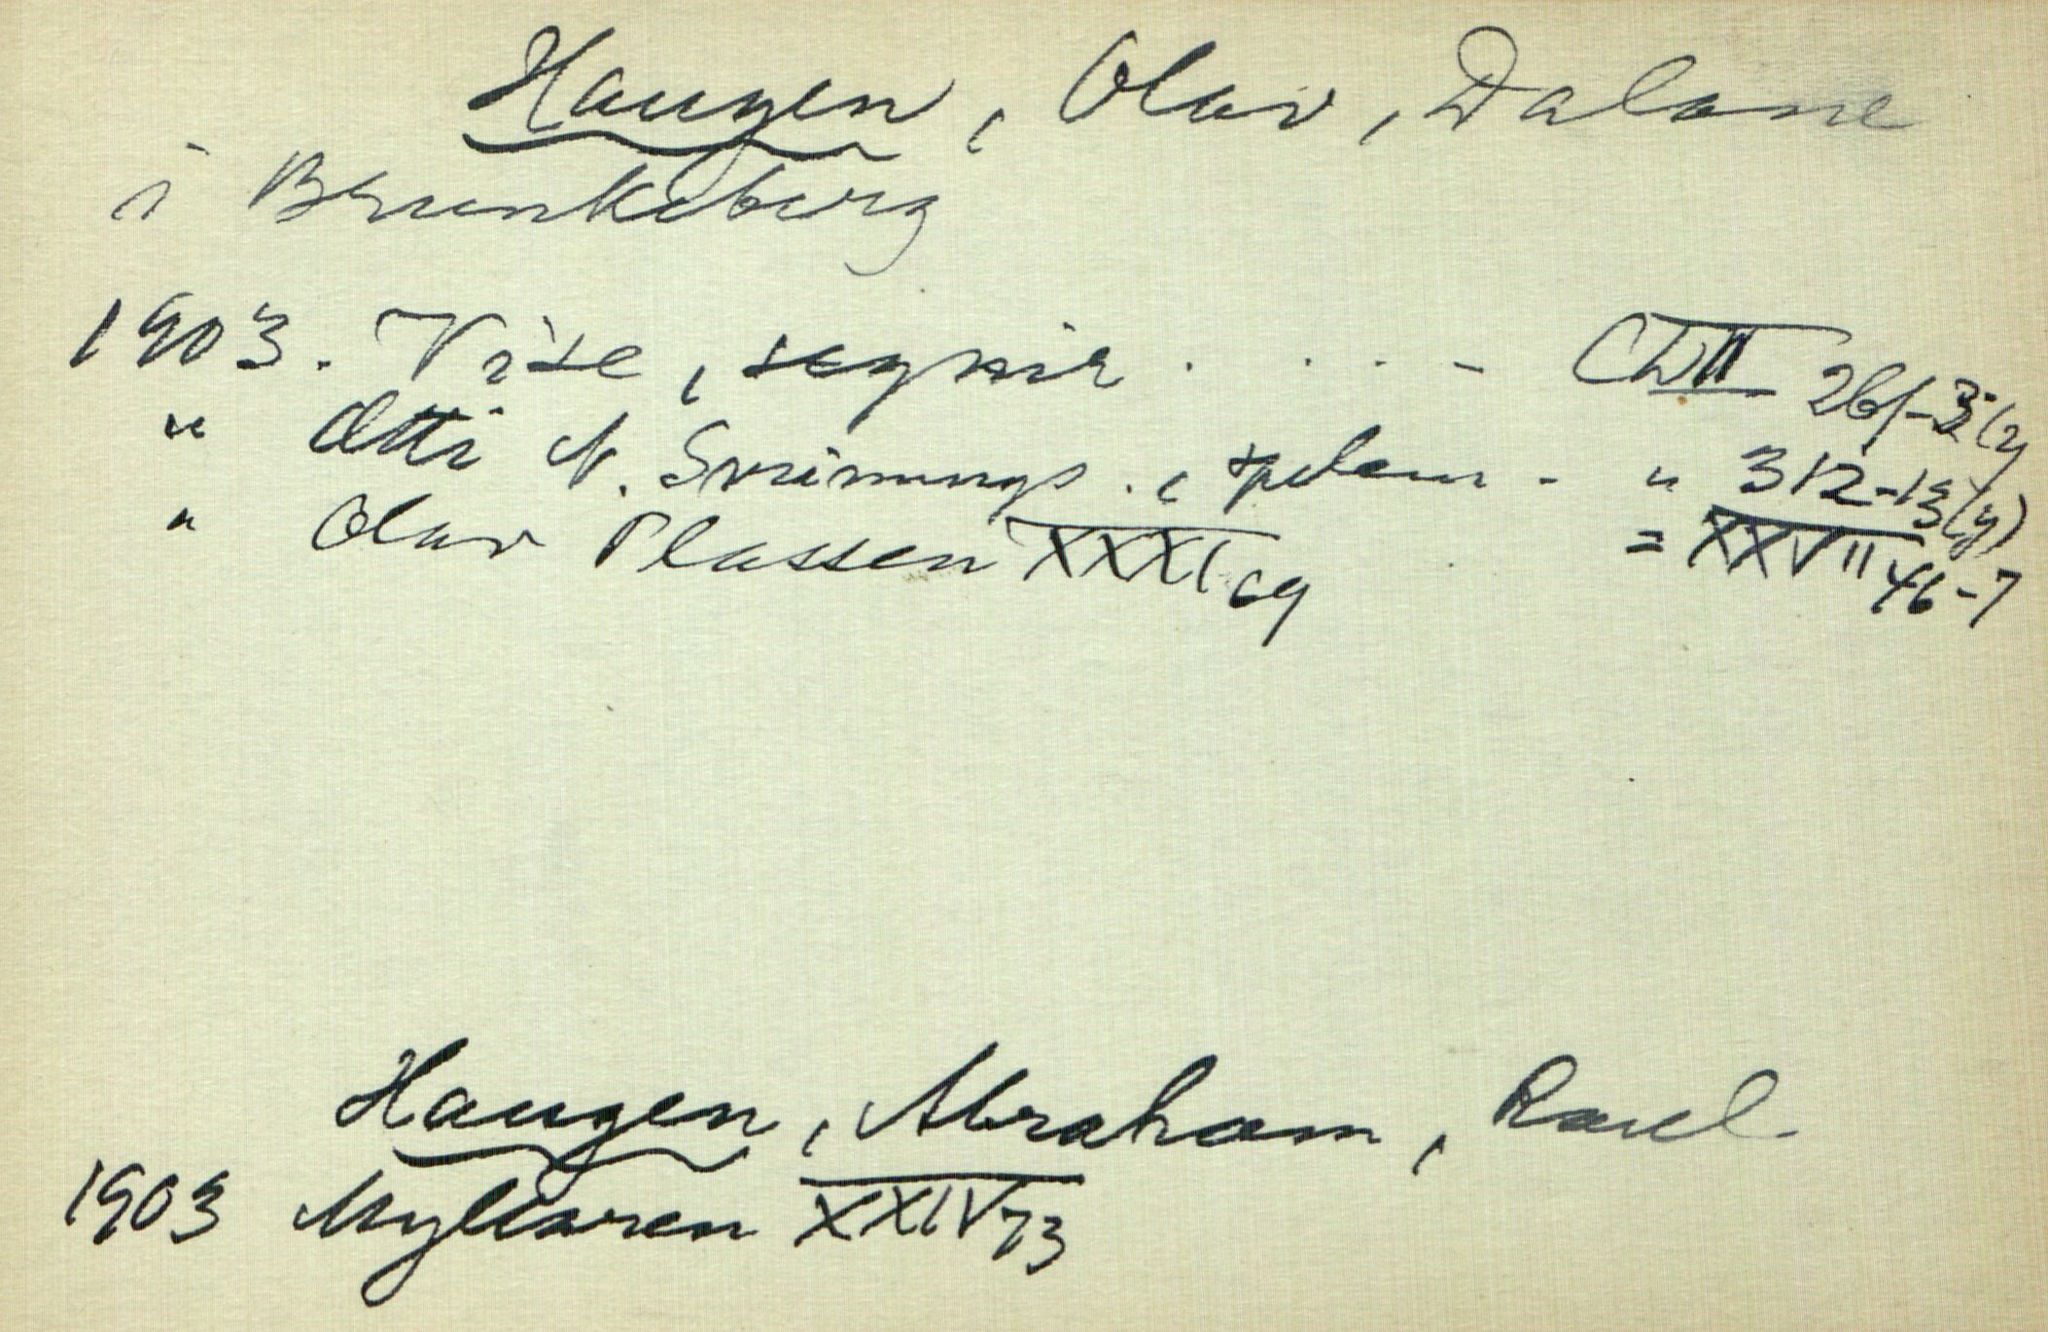 Haugen, Olav, Dalane
i Brunkeberg
1903. Vise, segner . . . - 261-3
" Ætti N. Sveinungs., spelem. - " 312-13(y)
" Olav Plassen XXXI 69 = XXVII 46-7
Haugen, Abraham, Rauland
1903 Myllaren XXIV 73